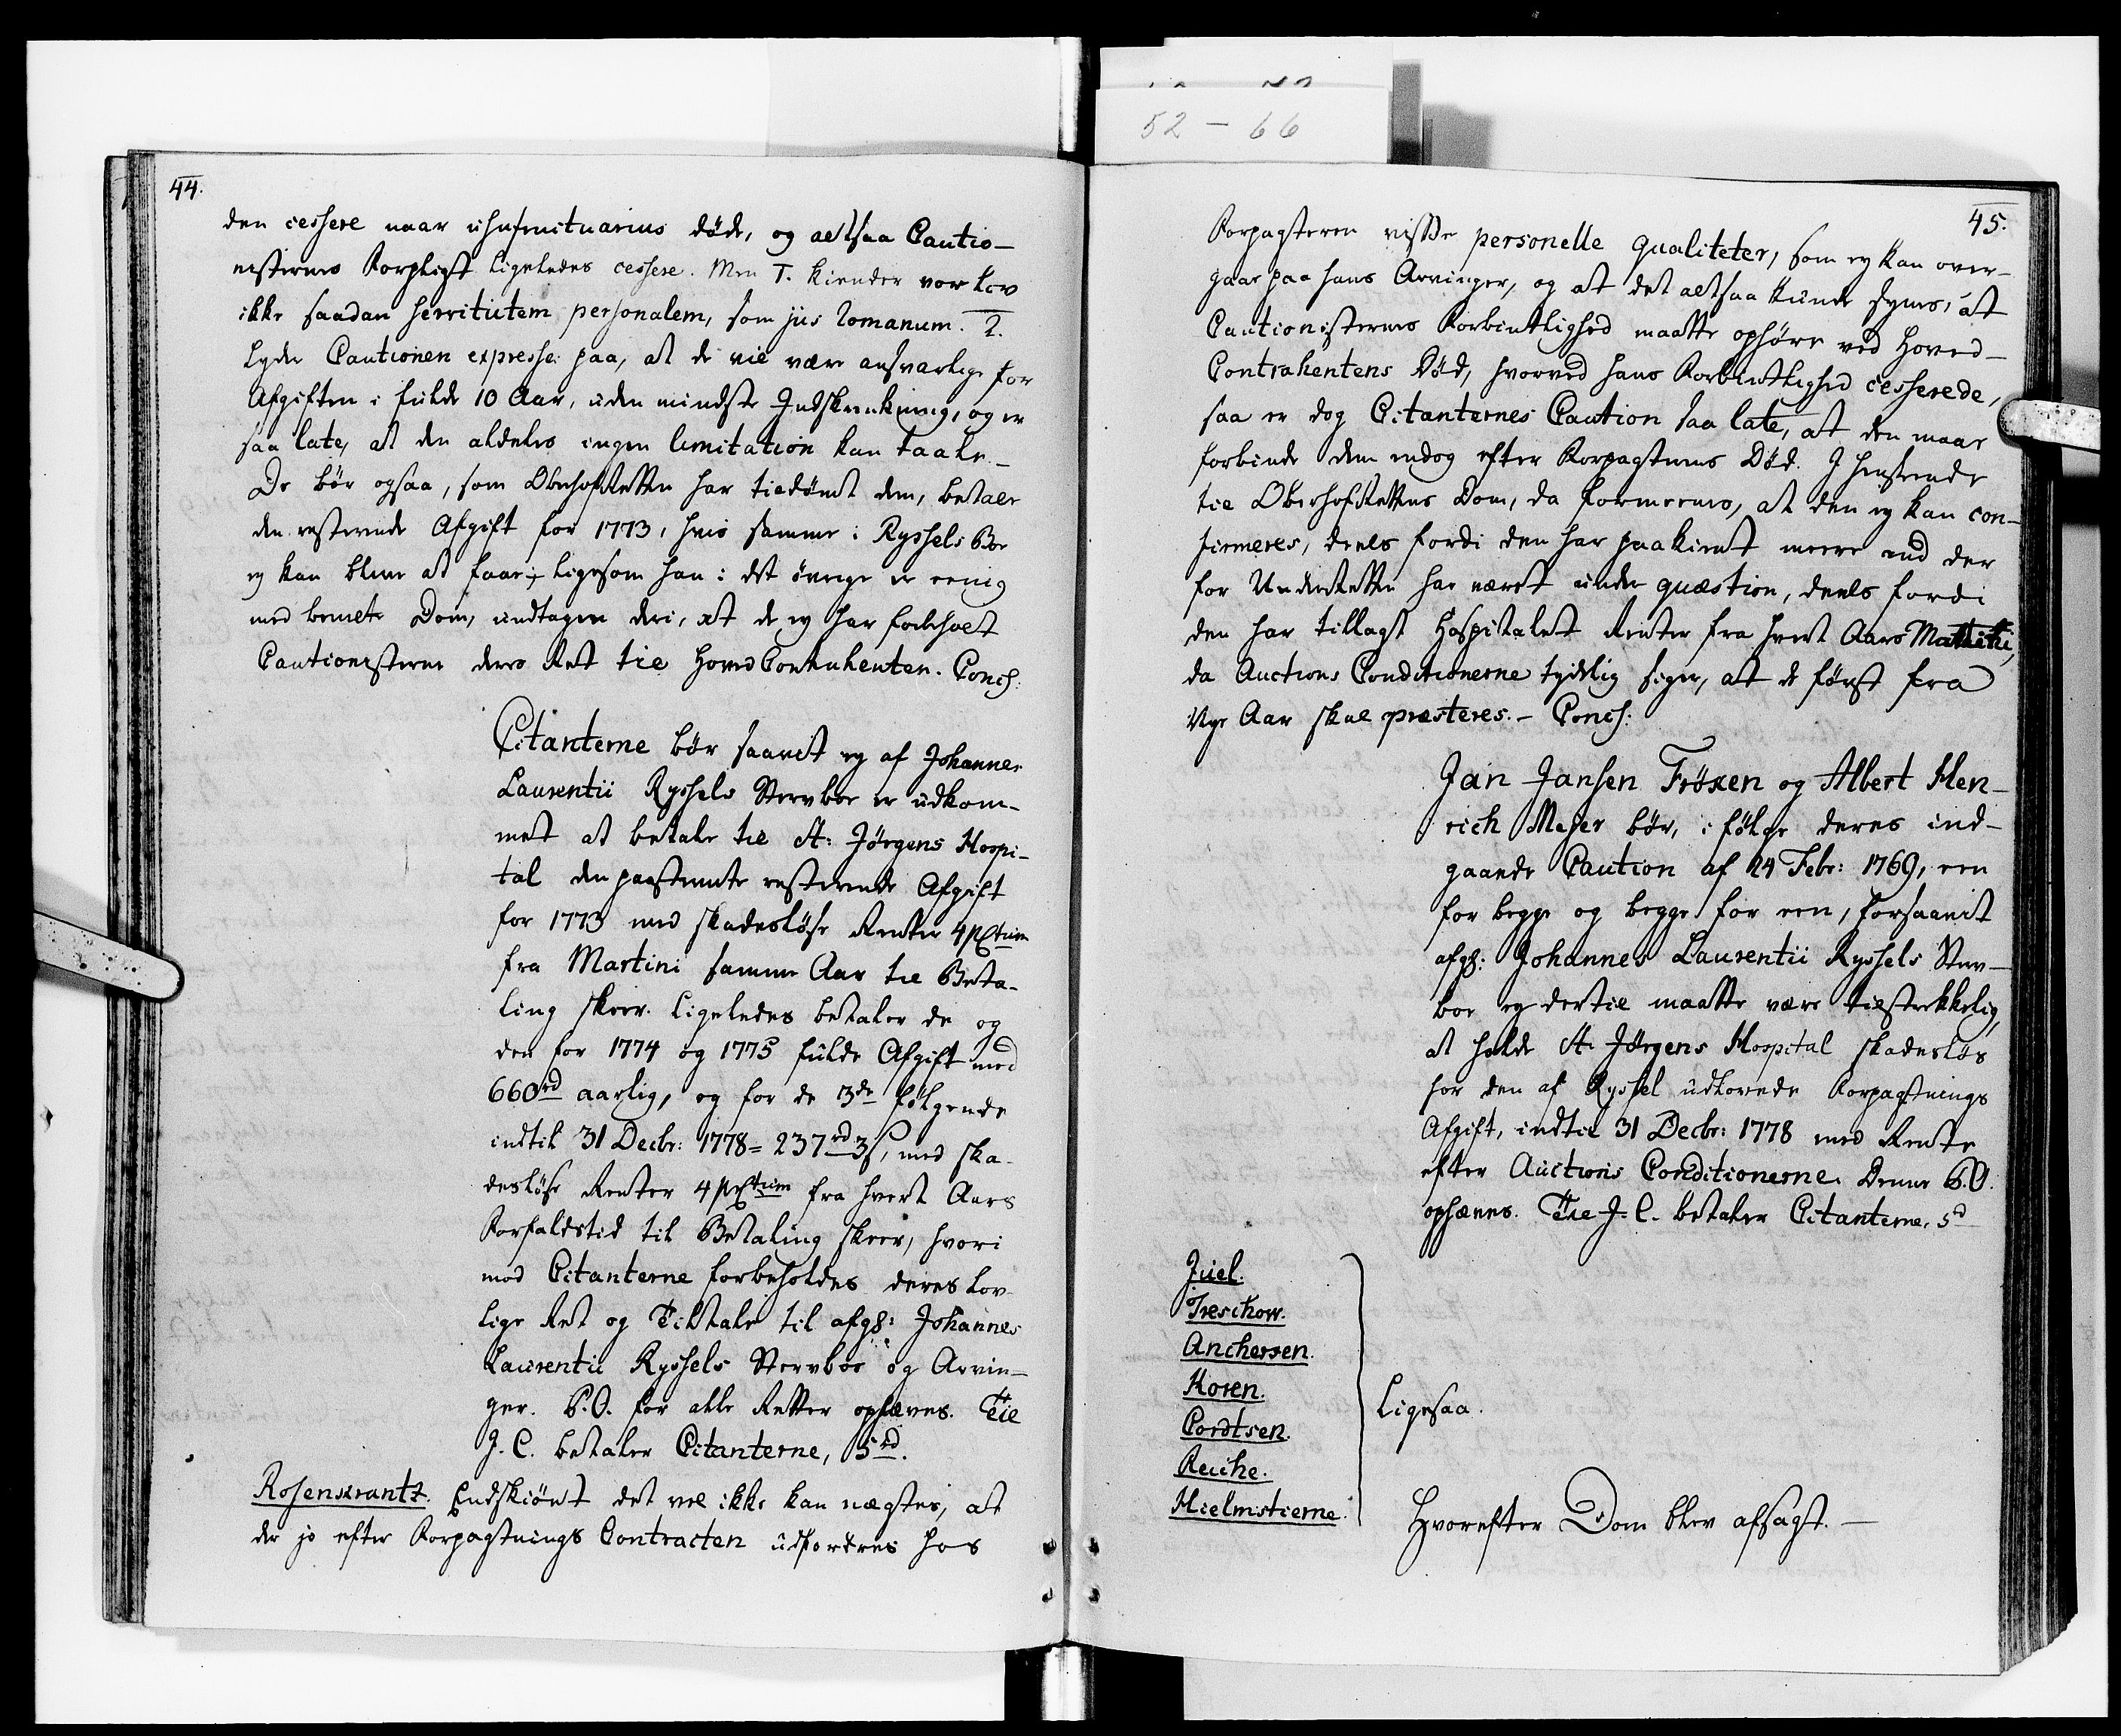 44.
den cessere naar usufructuarius døde, og altsaa Cautio-
nisternes Forpligt ligeledes cessere. Men 1. kiender vor Lov
ikke saadan servitutem personalem, som jus romanum. 2.
lyder Cautionen expresse paa, at de vil være ansvarlige for
Afgiften i fulde 10 Aar, uden mindste Indskrænkning, og er
saa late, at den aldeles ingen limitation kan taale. -
De bør ogsaa, som OberhofRetten har tildømt dem, betale
den resterende Afgift for 1773, hvis samme i Ryssels Boe
ey kan blive at faae; ligesom han i det øvrige er eenig
med bemelte Dom, undtagen deri, at de ey har forbeholt
Cautionisterne deres Ret til HovedContrahenten. Concl:
Citanterne bør saavit ey af Johannes
Laurentii Ryssels Stervboe er udkom-
met at betale til St: Jørgens Hospi-
tal den paastevnte resterende Afgift
for 1773 med skadesløse Renter 4 pCtum
fra Martini samme Aar til Beta-
ling skeer. Ligeledes betaler de og
den for 1774 og 1775 fulde Afgift med
660rd aarlig, og for de 3de følgende
indtil 31 Decbr: 1778 = 237rd 3s, med ska-
desløse Renter 4 pCtum fra hvert Aars
Forfaldstid til Betaling skeer, hvori
mod Citanterne forbeholdes deres lov-
lige Ret og Tiltale til afg: Johannes
Laurentii Ryssels Stervboe og Arvin-
ger. P.O. for alle Retter ophæves. Til
J.C. betaler Citanterne, 5rd.
Rosenkrantz. Endskiønt det vel ikke kan nægtes, at
der jo efter Forpagtnings Contracten udfordres hos
52 - 66
45.
Forpagteren visse personelle qualiteter, som ey kan over-
gaae paa hans Arvinger, og at det altsaa kunde synes, at
Cautionisternes Forbindtlighed maatte ophøre ved Hoved-
Contrahentens Død, hvorved hans Forbindtlighed cesserede,
saa er dog Citanternes Caution saa late, at den maae
forbinde dem endog efter Forpagterens Død. I Henseende
til OberhofRettens Dom, da formeenes, at den ey kan con-
firmeres, deels fordi den har paakient meere end der
for UnderRetten har været under quæstion, deels fordi
den har tillagt Hospitalet Renter fra hvert Aars Martini,
da Auctions Conditionerne tydelig siger, at de først fra
Nye Aar skal præsteres. - Concl:
Jan Jansen Frøxen og Albert Hen-
rich Meyer bør, i følge deres ind-
gaaede Caution af 24 Febr: 1769, een
for begge og begge for een, forsaavit
afg: Johannes Laurentii Ryssels Sterv-
boe ey dertil maatte være tilstrekkelig,
at holde St. Jørgens Hospital skadesløs
for den af Ryssel udlovede Forpagtnings
Afgift, indtil 31 Decbr: 1778 med Rente
efter Auctions Conditionerne. Denne P.O.
ophæves. Til J.C. betaler Citanterne, 5rd
Juel.
Treschow.
Anchersen.
Koren.
Cordtsen.
Reiche.
Hielmstierne.
Ligesaa.
Hvorefter Dom blev afsagt. -